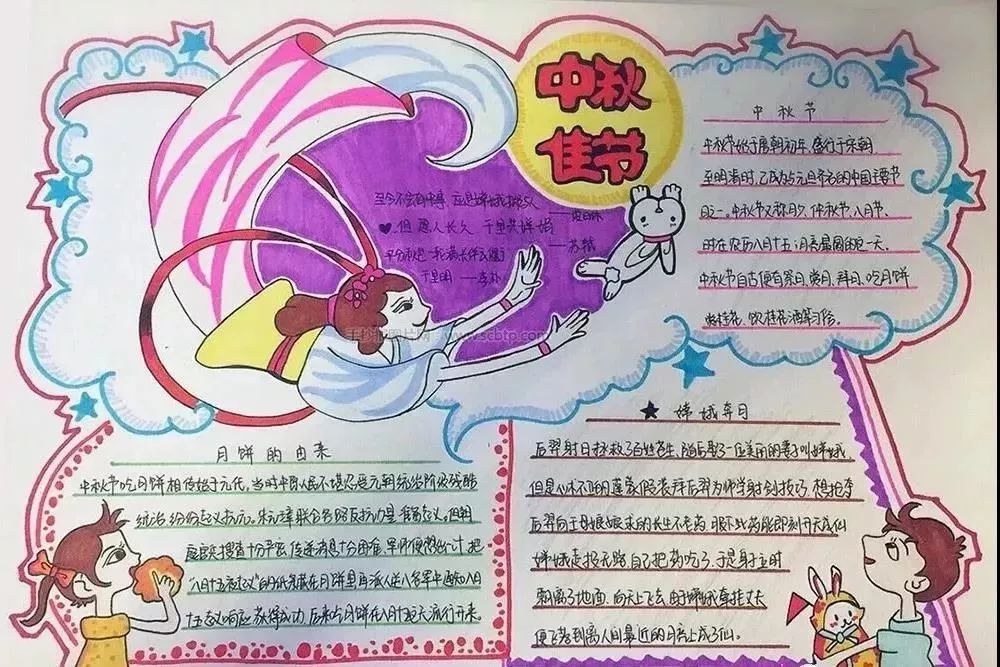 中秋
佳节
中秋节
中秋节始于唐朝初年,盛行于宋朝
至明清时,已成为与元旦齐名的中国主要节
日之一。中秋节又称月夕、仲秋节、八月节。
时在农历八月十五;月亮最圆的这一天。
中秋节自古便有祭月、赏月、拜月、吃月饼
赏桂花、饮桂花酒等习俗。
但愿人长久 千里共婵娟
——苏轼
平分秋色一轮满 长伴云衢
千里明 ——李朴
手抄报图片网 www.scbtp.com
月饼的由来
中秋节吃月饼相传始于元代,当时中原人民不堪忍受元朝统治阶级残酷
统治,纷纷起义抗元。朱元璋联合各路反抗力量准备起义。但朝
庭官兵搜查十分严密,传递消息十分困难。军师便想出一计,把
“八月十五夜起义”的纸条藏在月饼里,再派人送入各军中通知八月
十五起义响应,获得成功,后来吃月饼在八月十五这天流行开来。
嫦娥奔月
后羿射日拯救了百姓苍生,随后娶了一位美丽的妻子叫嫦娥,
但是心术不正的蓬蒙假装拜后羿为师学射剑技巧,想抢夺
后羿向王母娘娘求的长生不老药,服下此药能即刻升天成仙
嫦娥走投无路,自己把药吃了,于是身立时
飘离了地面,向天上飞去,由于嫦娥牵挂丈夫
便飞落到离人间最近的月亮上成了仙。